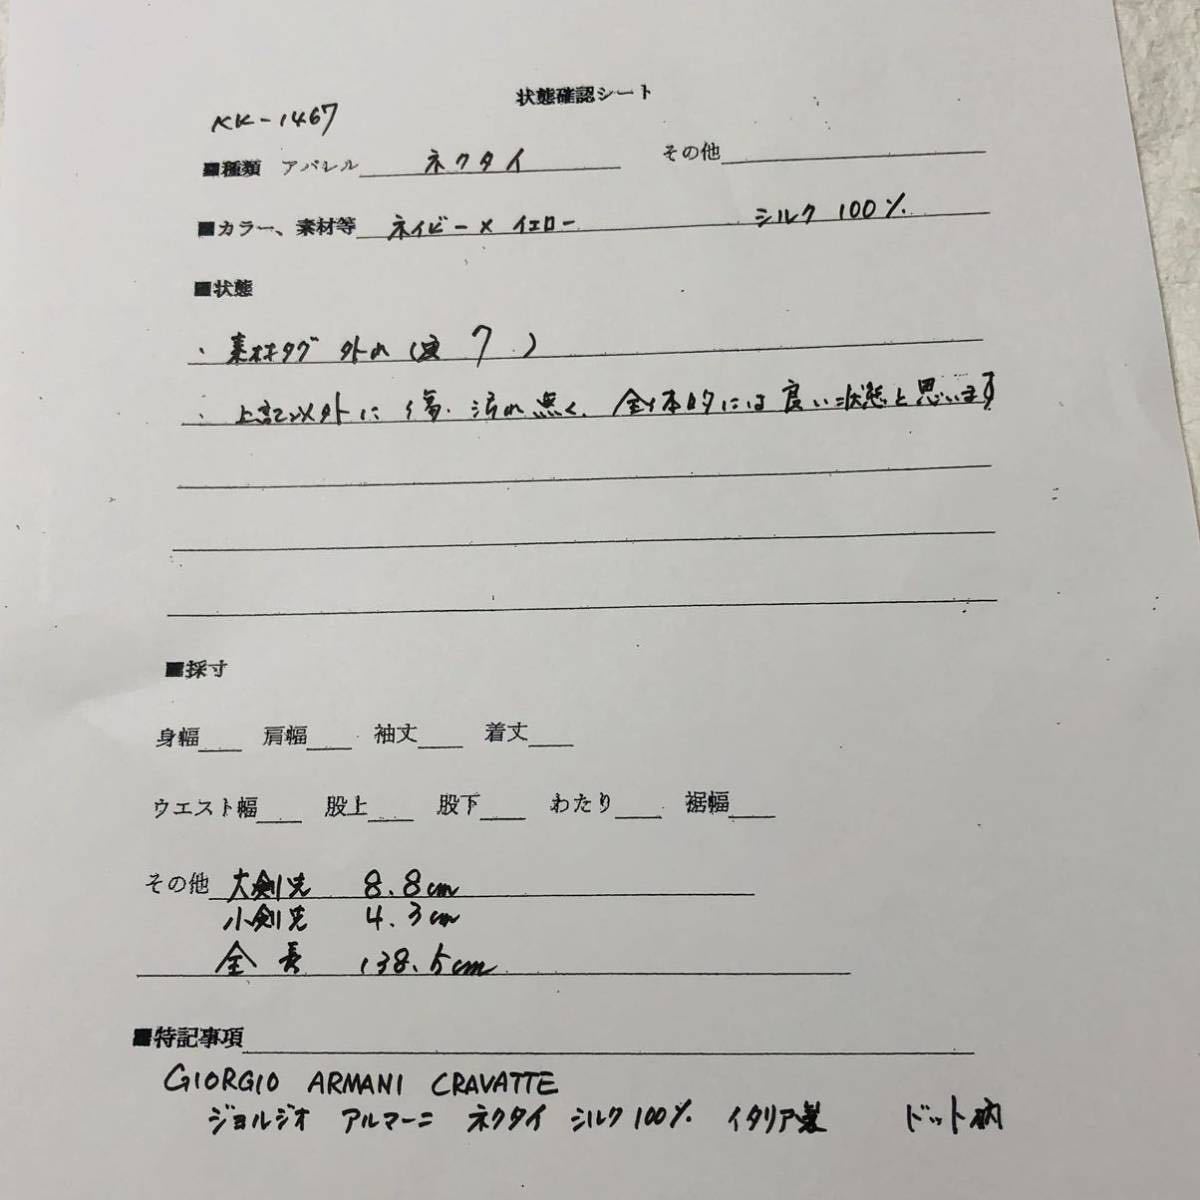 状態確認シート
KK-1467
■種類 アパレル ネクタイ その他
■カラー、素材等 ネイビー × イエロー シルク 100%
■状態
・素材タグ 外れ(写 7 )
・上記以外に 傷、汚れ無く、全体的には良い状態と思います
■採寸
身幅 肩幅 袖丈 着丈
ウエスト幅 股上 股下 わたり 裾幅
その他 大剣先 8.8cm
小剣先 4.3cm
全長 138.5cm
■特記事項
GIORGIO ARMANI CRAVATTE
ジョルジオ アルマーニ ネクタイ シルク100% イタリア製 ドット柄